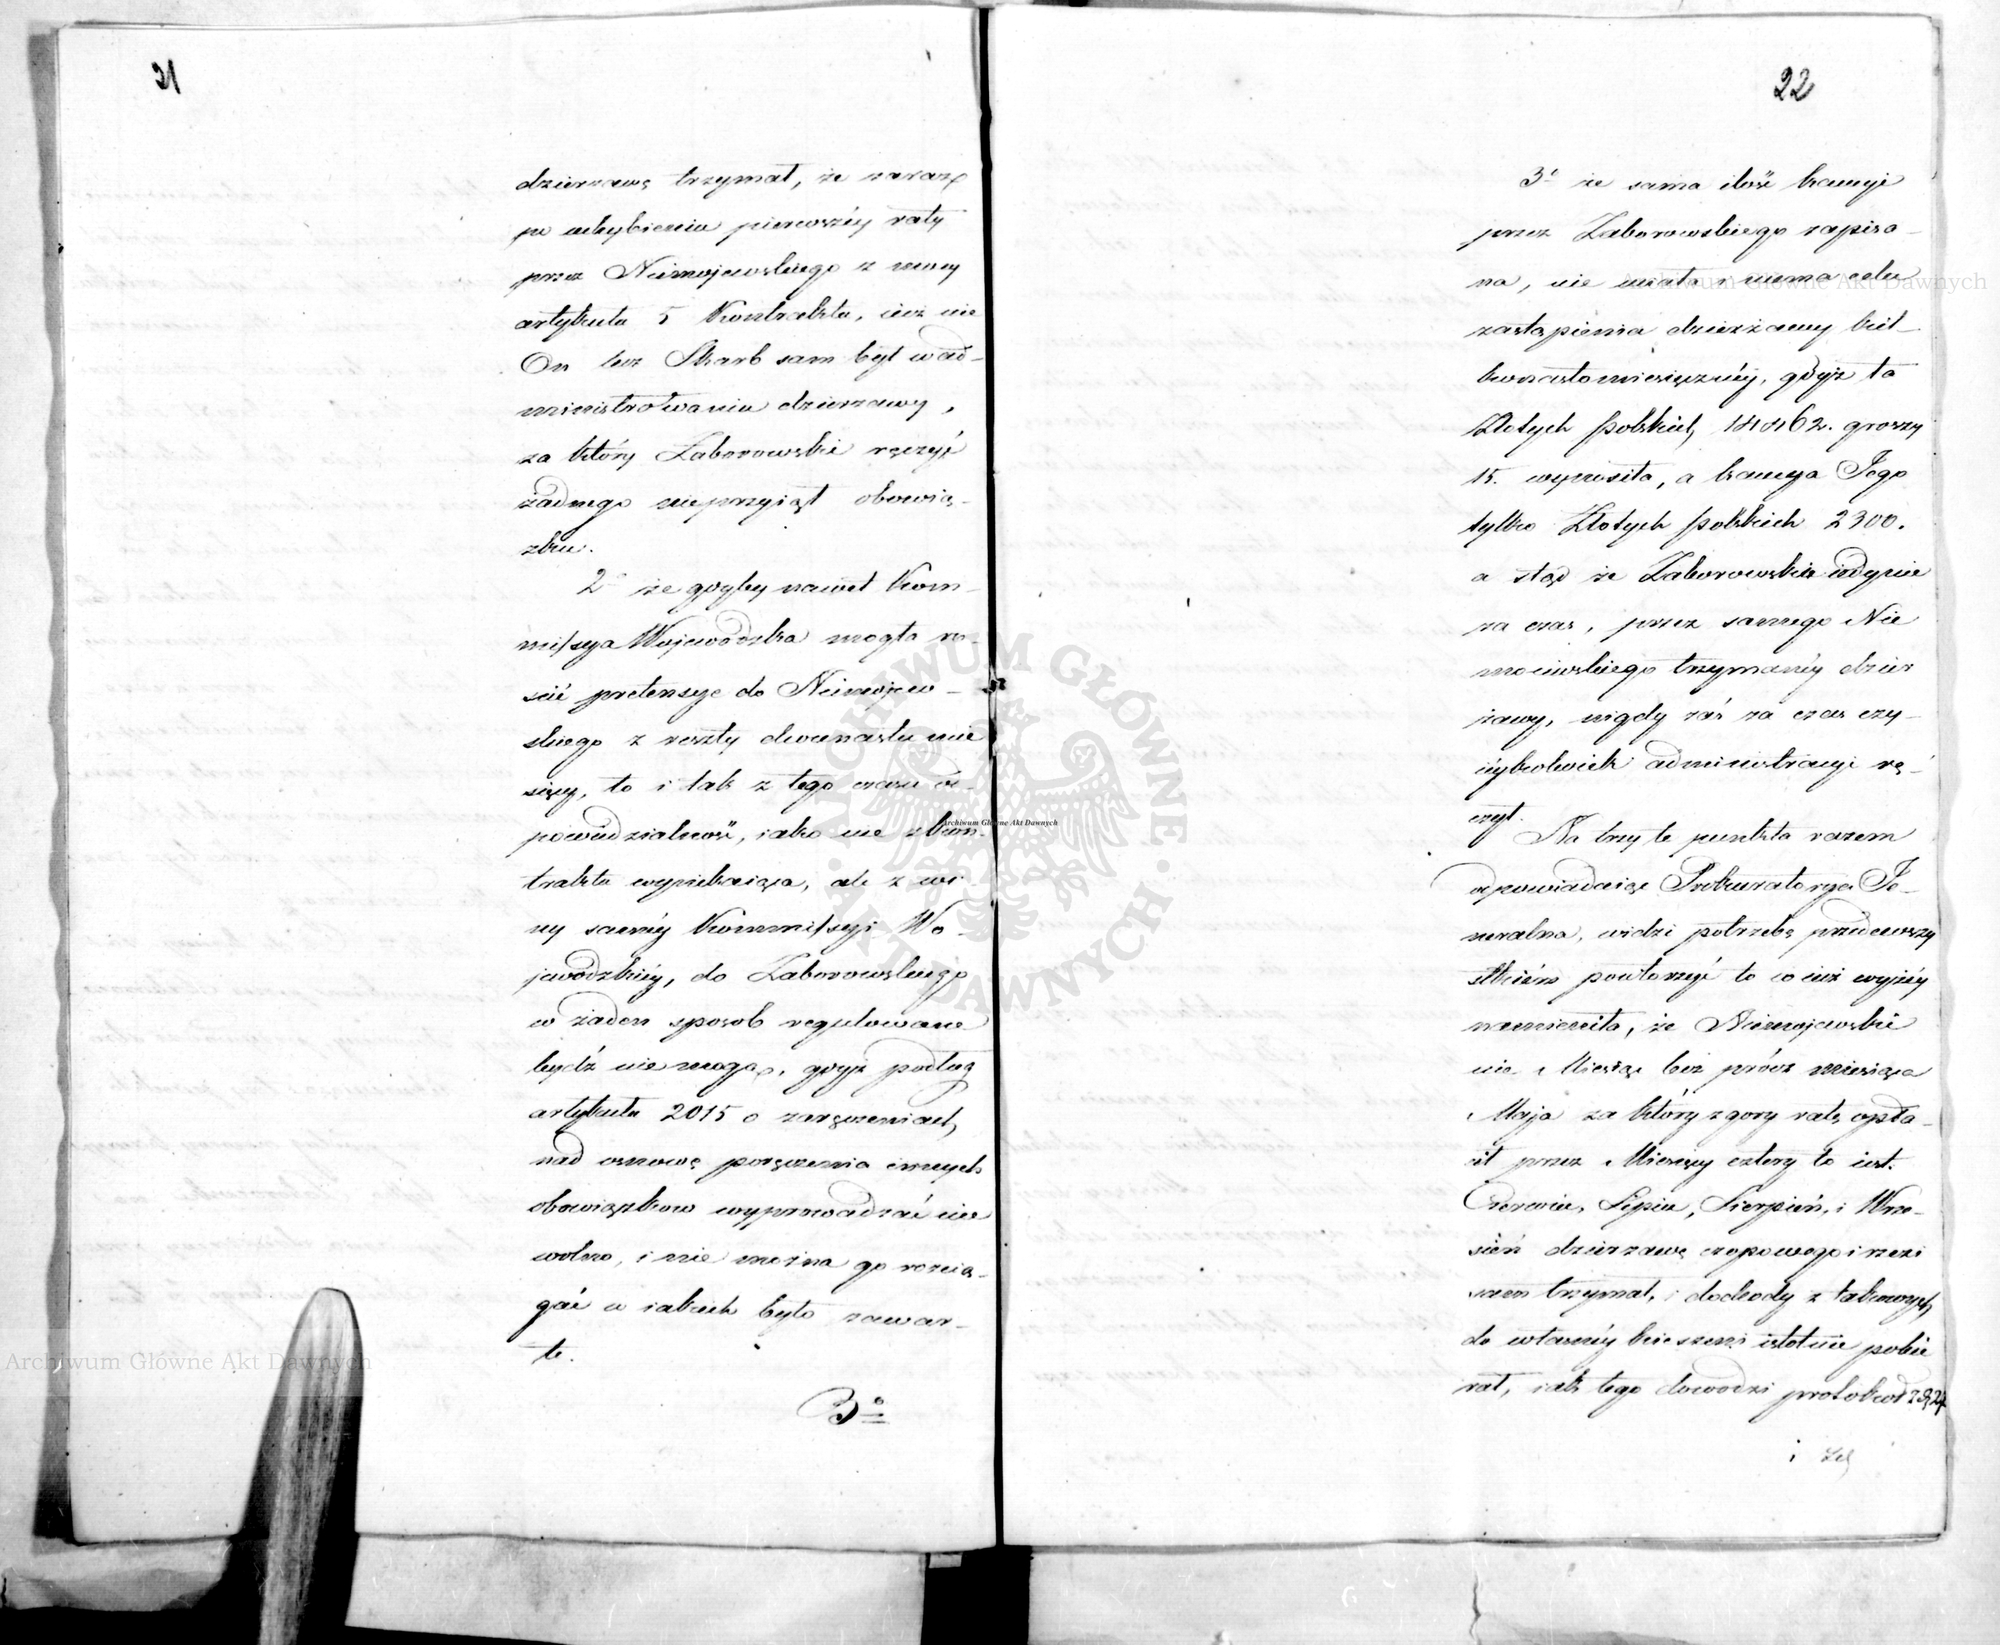 21
dzierzawę trzymał, że zaraz
po uchybieniu pierwszéy raty
przez Niemojewskiego z mocy
artykułu 5 Kontraktu, iuż nie
On lecz Skarb sam był w ad-
ministrowaniu dzierzawy,
za który Zaborowski ręczyć
żadnego nieprzyiął obowią-
zku.
2° że gdyby nawet Kom-
missya Wojewódzka mogła ro-
ścić pretensye do Niemojew-
skiego z reszty dwunastu mie
sięcy, to i tak z tego czasu od-
powiedzialność, iako nie z kon-
traktu wynikaiąca, ale z wi-
ny saméy Kommissyi Wo-
jewódzkiéy, do Zaborowskiego
w żaden sposob regulowane
bydź nie mogą, gdyż podług
artykułu 2015 o zaręczeniach,
nad osnowę poręczenia innych
obowiązkow wyprowadzać nie
wolno, i nie można go rozcią-
gać w iakich było zawar-
te.
3°
22
3° że sama ilość kaucyi
przez Zaborowskiego zapisa-
na, nie miała i niema celu
zastąpienia dzierżawy kil-
konastomiesięcznéy, gdyż ta
Złotych polskich groszy
15. wynosiła, a kaucya Jego
tylko Złotych polskich 2300.
a stąd że Zaborowski iedynie
za czas, przez samego Nie
moiewskiego trzymanéy dzier
żawy, nigdy zaś za czas czy-
iéykolwiek administracyi rę-
czył.
Na trzy te punkta razem
odpowiadaiąc Prokuratorya Je-
neralna, widzi potrzebę przedewszy
stkiém powtorzyć to co iuż wyżéy
namieniła, że Niemojewski
nie Miesiąc lecz prócz miesiąca
Maja za który z gory ratę opła-
cił przez Miesięcy cztery to iest.
Czerwiec, Lipiec, Sierpień, i Wrze-
sień dzierzawę czopowego i rzezi
sam trzymał, i dochody z takowych
do własnéy kieszeni istotnie pobie
rał, iak tego dowodzi protokoł z 9/24
i
Archiwum Główne Akt Dawnych
Archiwum Główne Akt Dawnych
Archiwum Główne Akt Dawnych
ARCHIWUM GŁÓWNE AKT DAWNYCH